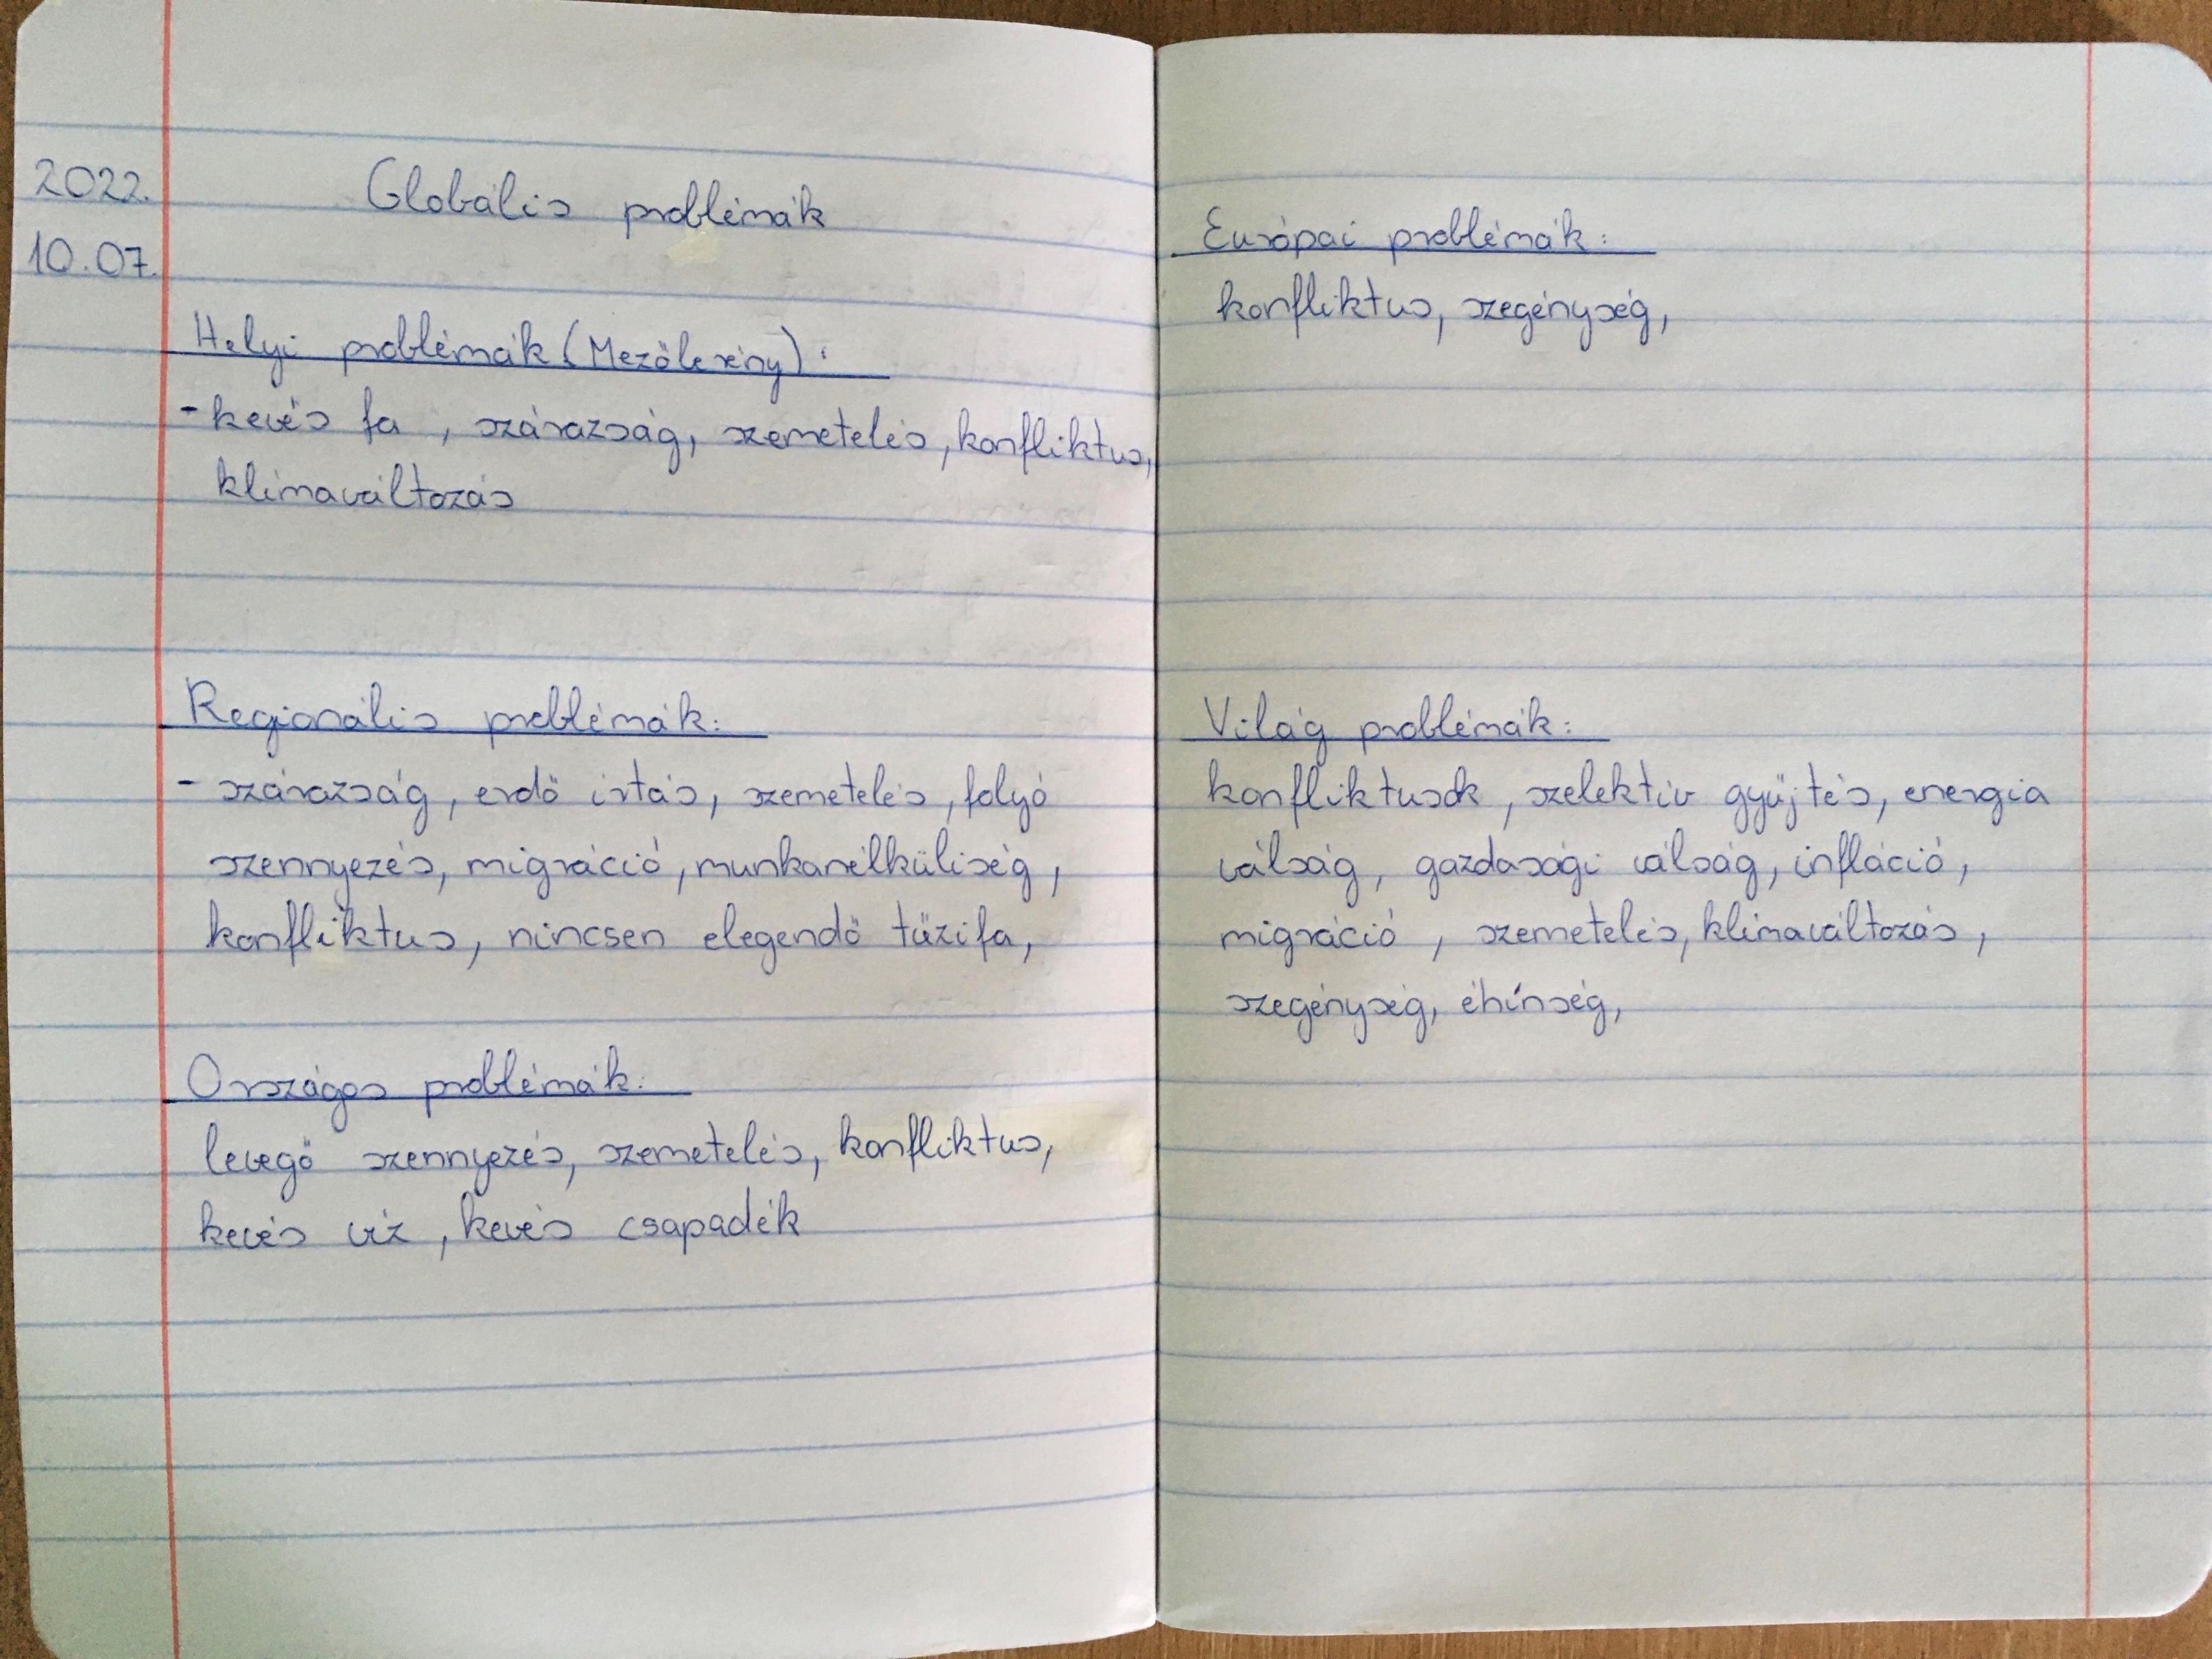 2022.
10.07.
Globális problémák
Helyi problémák (Mezőlerény):
- kevés fa, szárazság, szemetelés, konfliktus,
klímaváltozás
Regionális problémák:
- szárazság, erdő írtás, szemetelés, folyó
szennyezés, migráció, munkanélküliség,
konfliktus, nincsen elegendő tűzifa,
Országos problémák:
levegő szennyezés, szemetelés, konfliktus,
kevés víz, kevés csapadék
Európai problémák:
konfliktus, szegénység,
Világ problémák:
konfliktusok, szelektív gyűjtés, energia
válság, gazdasági válság, infláció,
migráció, szemetelés, klímaváltozás,
szegénység, éhínség,